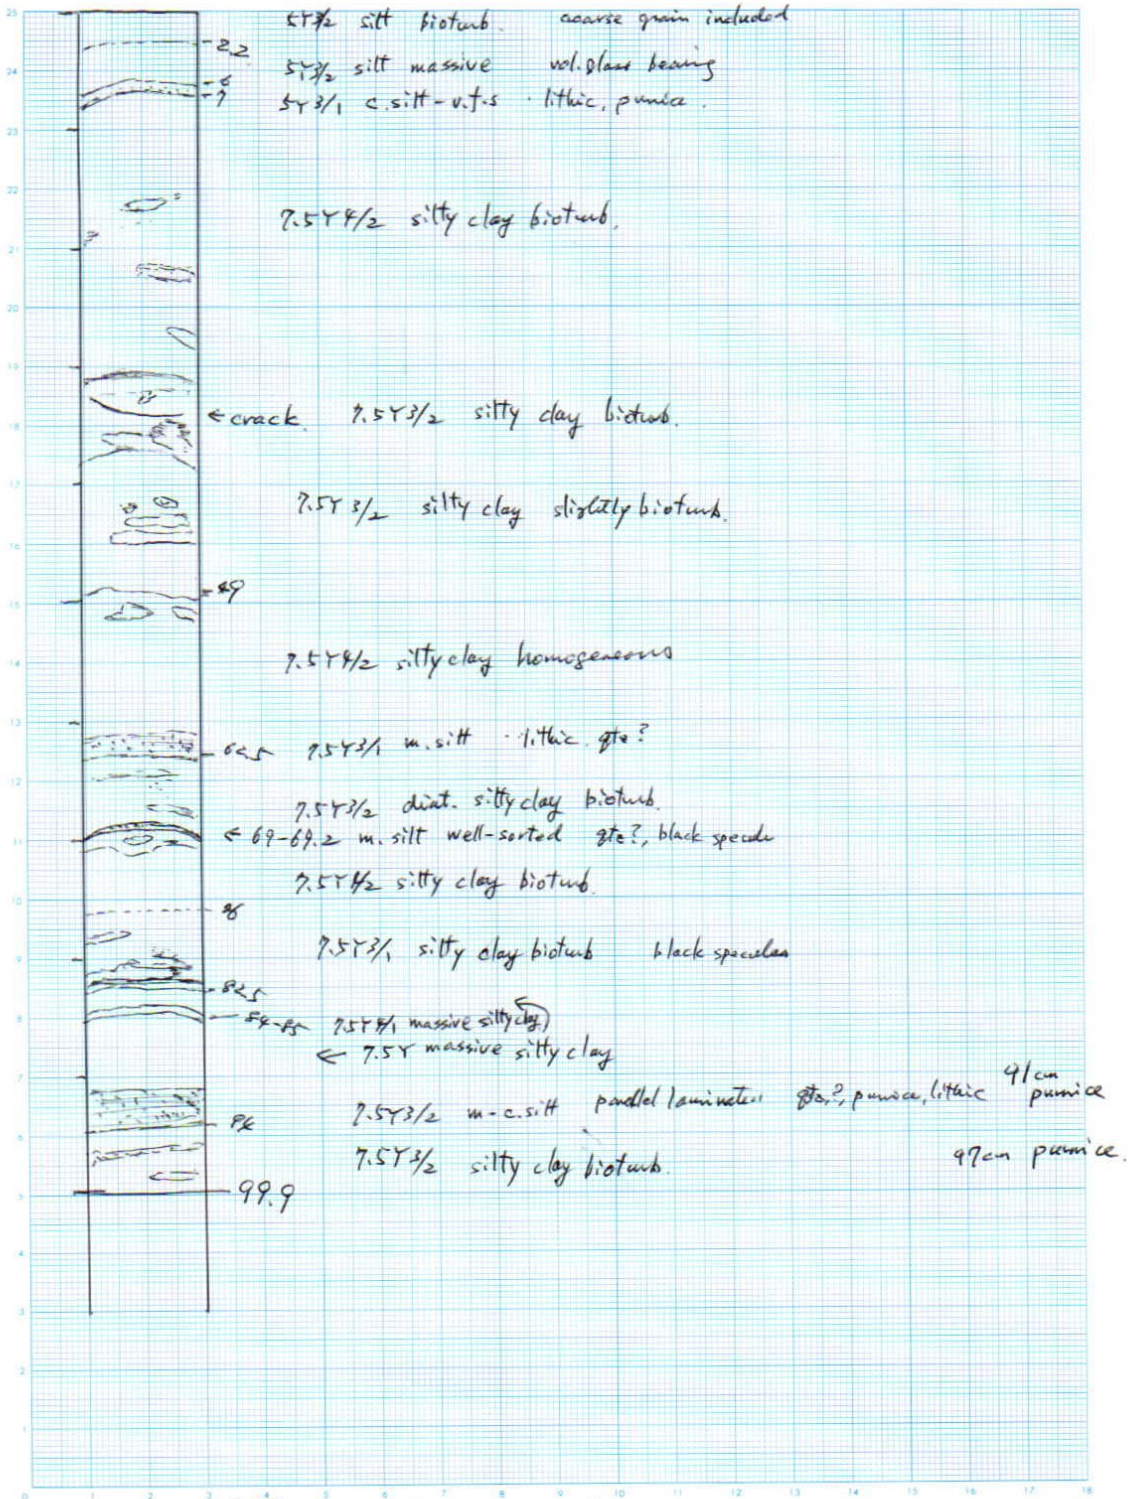 5Y3/2 silt bioturb. coarse grain included
2.2
5Y3/2 silt massive vol. glass bearing
6
7 5Y 3/1 c. silt - v.f.s · lithic, pumice.
7.5Y 4/2 silty clay bioturb.
← crack. 7.5Y3/2 silty clay bioturb.
7.5Y 3/2 silty clay slightly bioturb.
49
7.5Y4/2 silty clay homogeneous
62.5 7.5Y3/1 m. silt · lithic. qtz?
7.5Y3/2 diat. silty clay bioturb.
← 69-69.2 m. silt well-sorted qtz?, black
7.5Y silty clay bioturb.
7.5Y3/1 silty clay bioturb black
82.5
84-85 7.5Y massive silty clay
← 7.5Y massive silty clay
91cm
7.5Y3/2 m-c. silt parallel qtz?, pumice, lithic pumice
7.5Y3/2 silty clay bioturb. 97cm pumice.
99.9
25
24
23
22
21
20
19
18
17
16
15
14
13
12
11
10
9
8
7
6
5
4
3
2
1
0 1 2 3 4 5 6 7 8 9 10 11 12 13 14 15 16 17 18